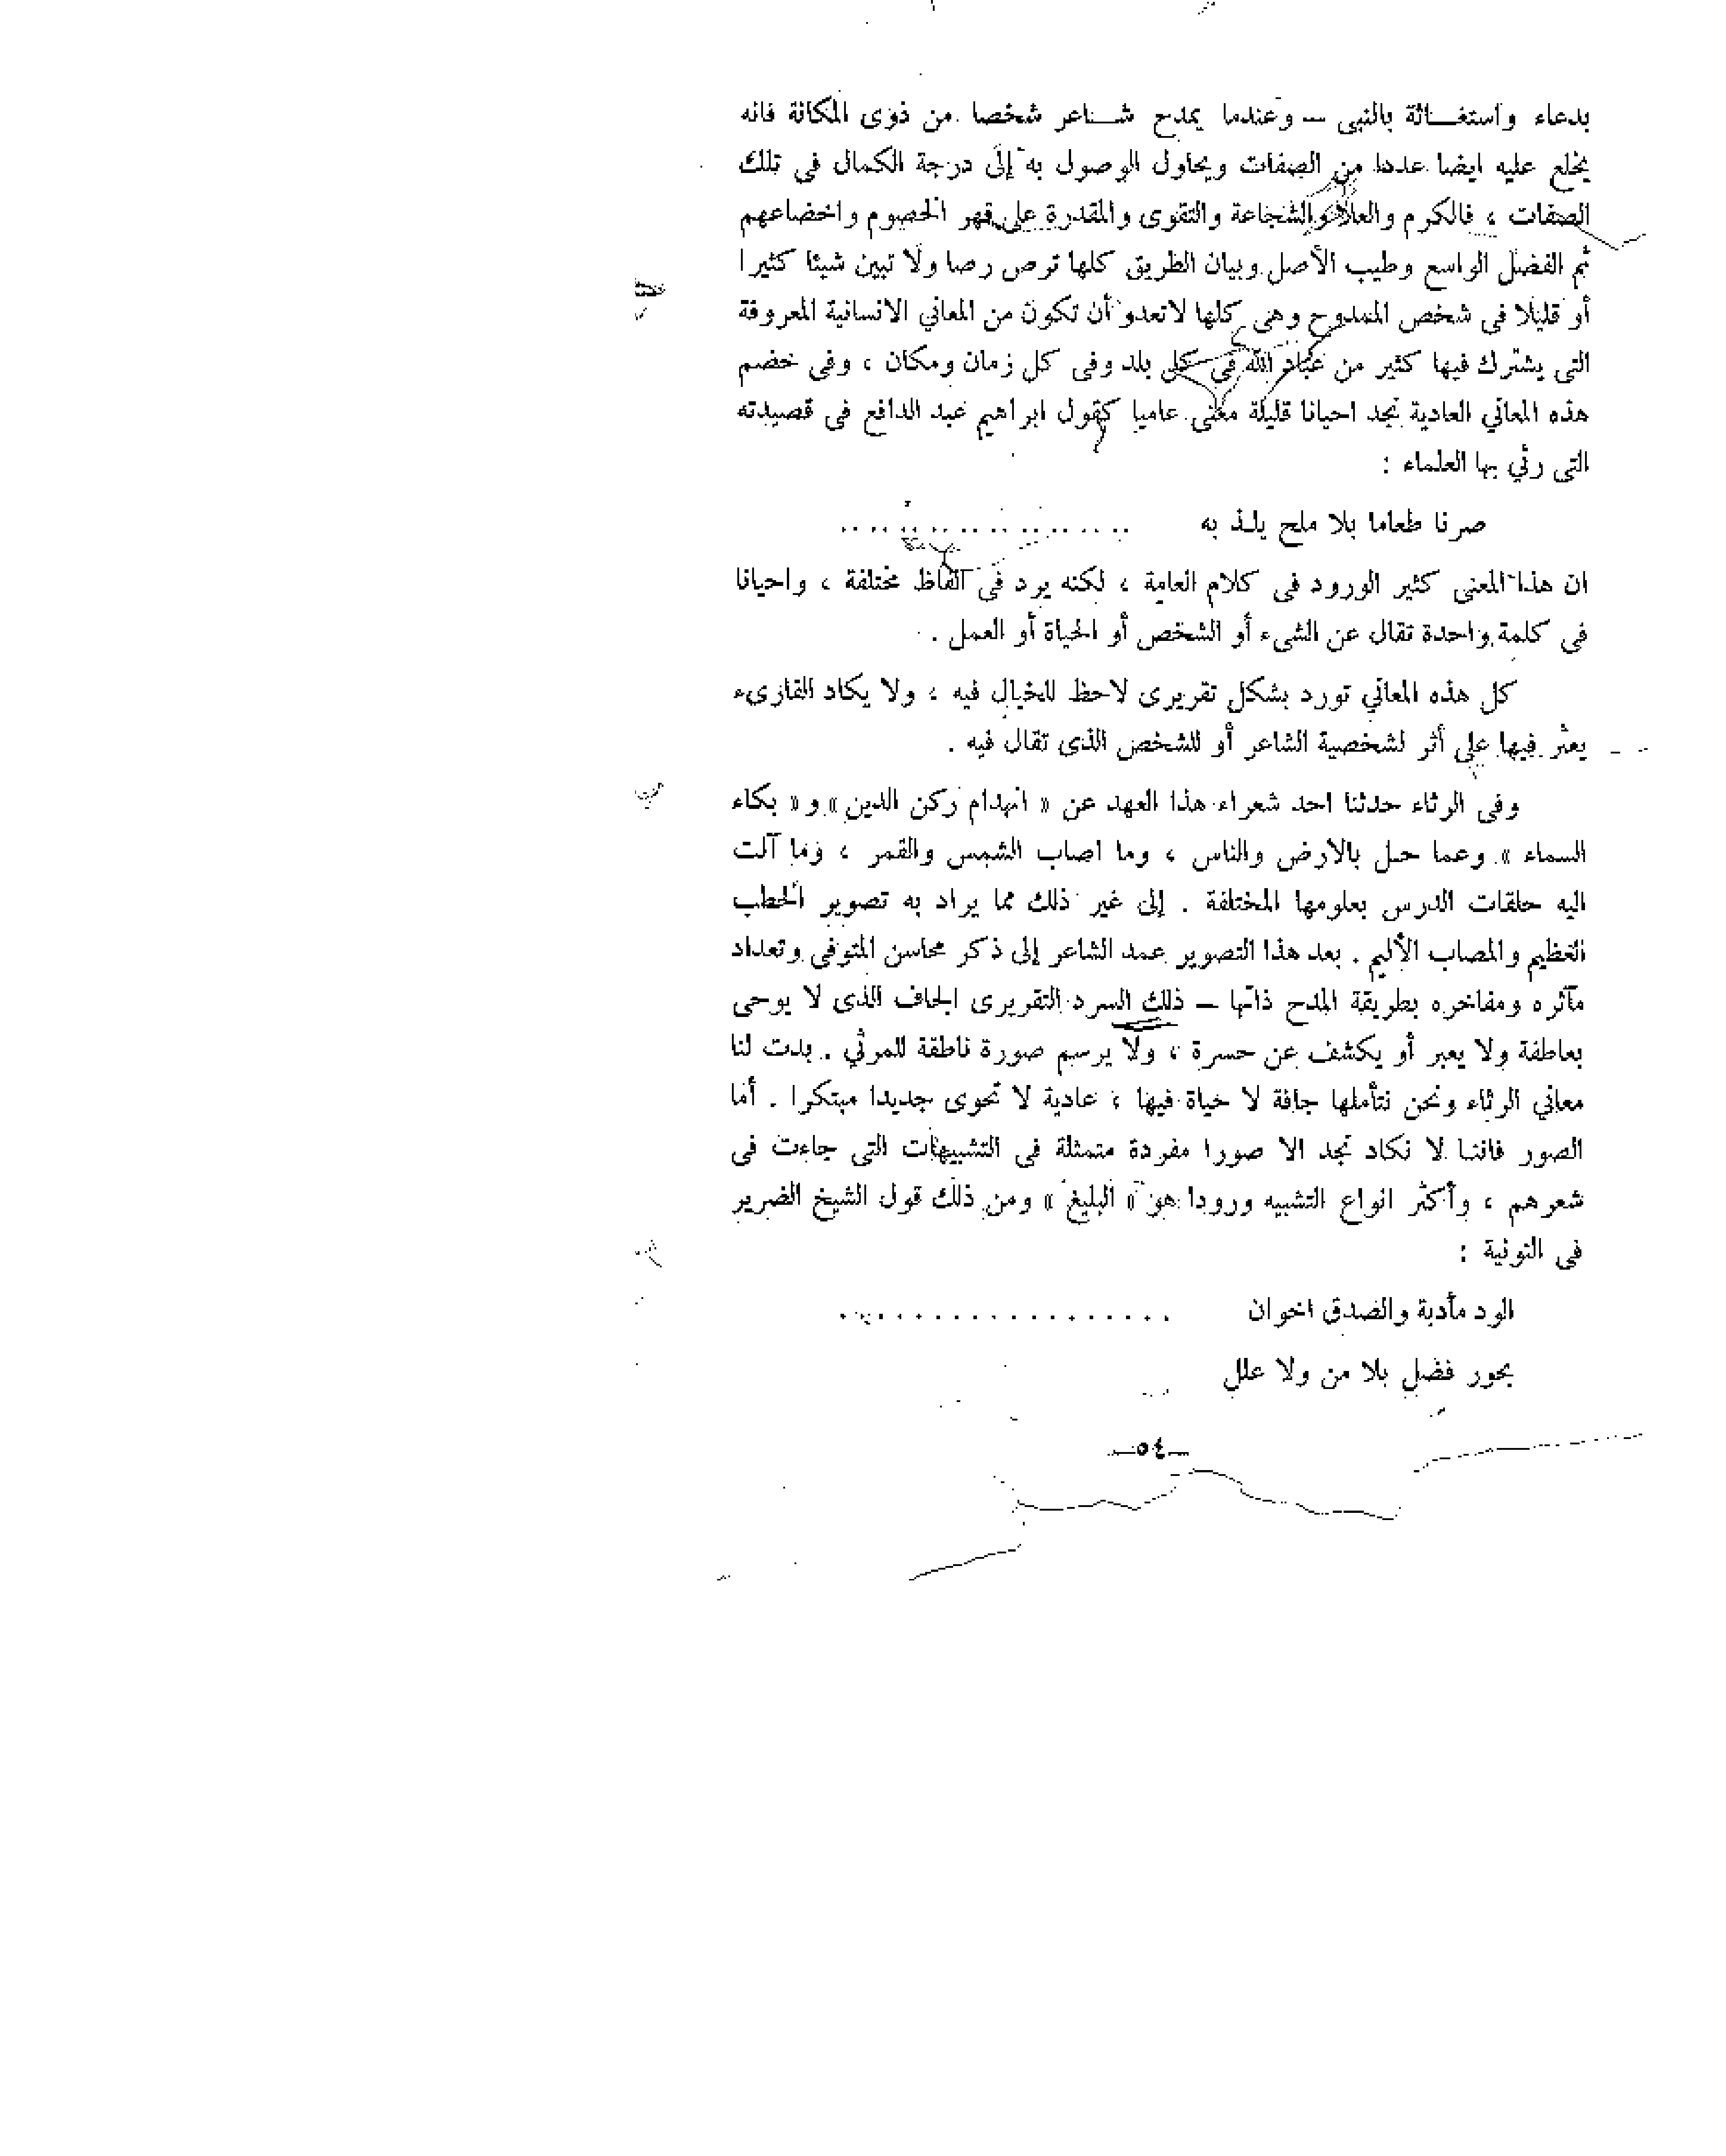 بدعاء واستغـاثة بالنبى — وعندما يمدح شـاعر شخصا من ذوى المكانة فانه
يخلع عليه ايضا عددا من الصفات ويحاول الوصول به إلى درجة الكمال في تلك
الصفات ، فالكرم والعلا والشجاعة والتقوى والمقدرة على قهر الخصوم واخضاعهم
ثم الفضل الواسع وطيب الأصل وبيان الطريق كلها ترص رصا ولا تبين شيئا كثيرا
أو قليلا فى شخص الممدوح وهى كلها لاتعدو أن تكون من المعاني الانسانية المعروفة
التى يشترك فيها كثير من عباد الله في كل بلد وفى كل زمان ومكان ، وفى خضم
هذه المعاني العادية نجد احيانا قليلة معنى عاميا كقول ابراهيم عبد الدافع فى قصيدته
التى رثي بها العلماء :
صرنا طعاما بلا ملح يلـذ به . . . . . . . . . . . . . . . . . . .
ان هذا المعنى كثير الورود فى كلام العامة ، لكنه يرد فى الفاظ مختلفة ، واحيانا
فى كلمة واحدة تقال عن الشىء أو الشخص أو الحياة أو العمل .
كل هذه المعاني تورد بشكل تقريرى لاحظ للخيال فيه ، ولا يكاد القارىء
يعثر فيها على أثر لشخصية الشاعر أو للشخص الذى تقال فيه .
وفى الرثاء حدثنا احد شعراء هذا العهد عن « انهدام ركن الدين » و « بكاء
السماء » وعما حل بالارض والناس ، وما اصاب الشمس والقمر ، وما آلت
اليه حلقات الدرس بعلومها المختلفة . إلى غير ذلك مما يراد به تصوير الخطب
العظيم والمصاب الأليم . بعد هذا التصوير عمد الشاعر إلى ذكر محاسن المتوفى وتعداد
مآثره ومفاخره بطريقة المدح ذاتها — ذلك السرد التقريرى الجاف الذى لا يوحى
بعاطفة ولا يعبر أو يكشف عن حسرة ، ولا يرسم صورة ناطقة للمرثي . بدت لنا
معاني الرثاء ونحن نتأملها جافة لا حياة فيها ، عادية لا تحوى جديدا مبتكرا . أما
الصور فاننا لا نكاد نجد الا صورا مفردة متمثلة فى التشبيهات التى جاءت فى
شعرهم ، وأكثر انواع التشبيه ورودا هو « البليغ » ومن ذلك قول الشيخ الضرير
فى النونية :
الود مأدبة والصدق اخوان . . . . . . . . . . . . . . . . . .
بحور فضل بلا من ولا علل
—٥٤—